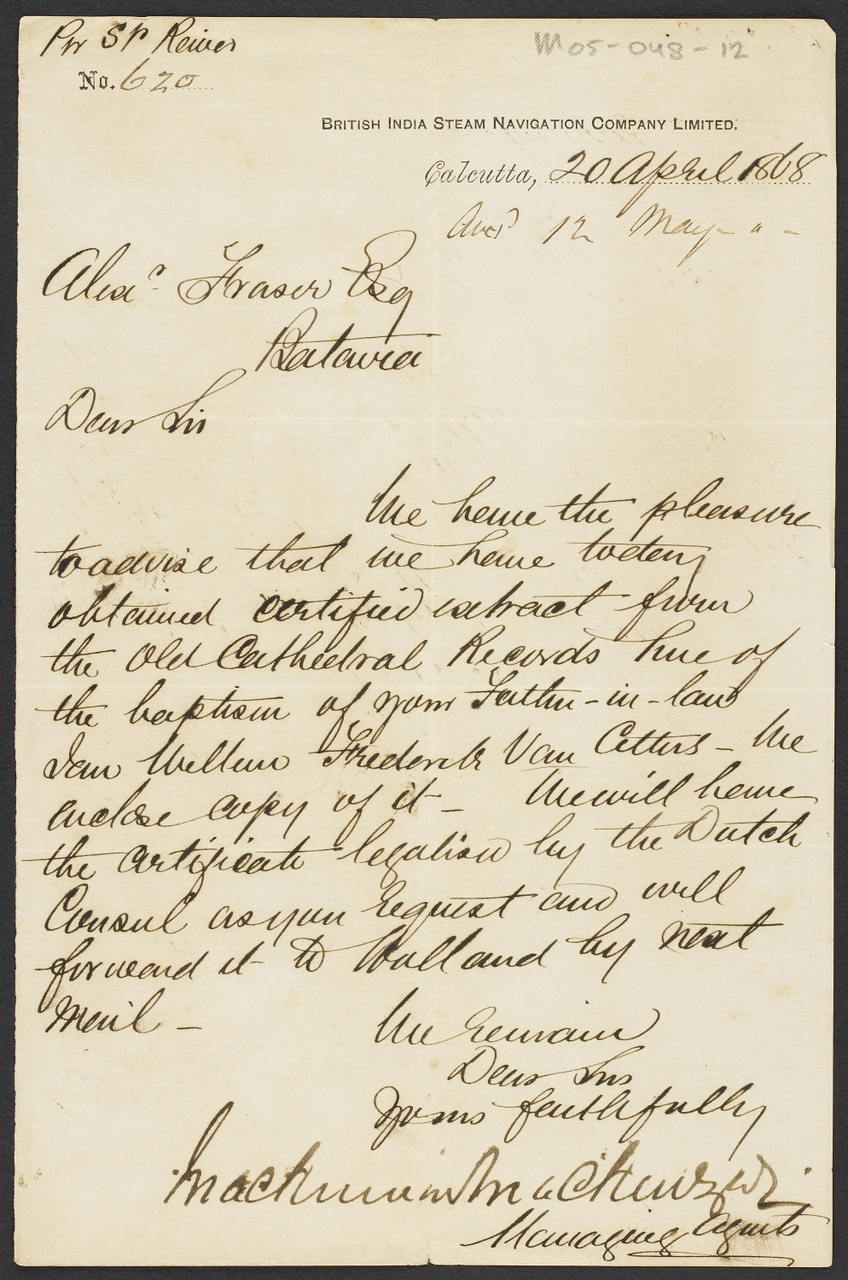 Per Sr Reiver
M05-048-12
No. 620
British India Steam Navigation Company Limited.
Calcutta, 20 April 1868
Ansd 12 May " -
Alexr Fraser Esq
Batavia
Dear Sir
We have the pleasure
to advise that we have today
obtained certified extract from
the Old Cathedral Records here of
the baptism of your Father-in-law
Jan Willem Frederik Van Citters - We
enclose copy of it - We will have
the certificate legalised by the Dutch
Consul as you request and will
forward it to Holland by next
Mail -
We remain
Dear Sir
Yours faithfully
Mackinnon Mackenzie & Co.
Managing Agents